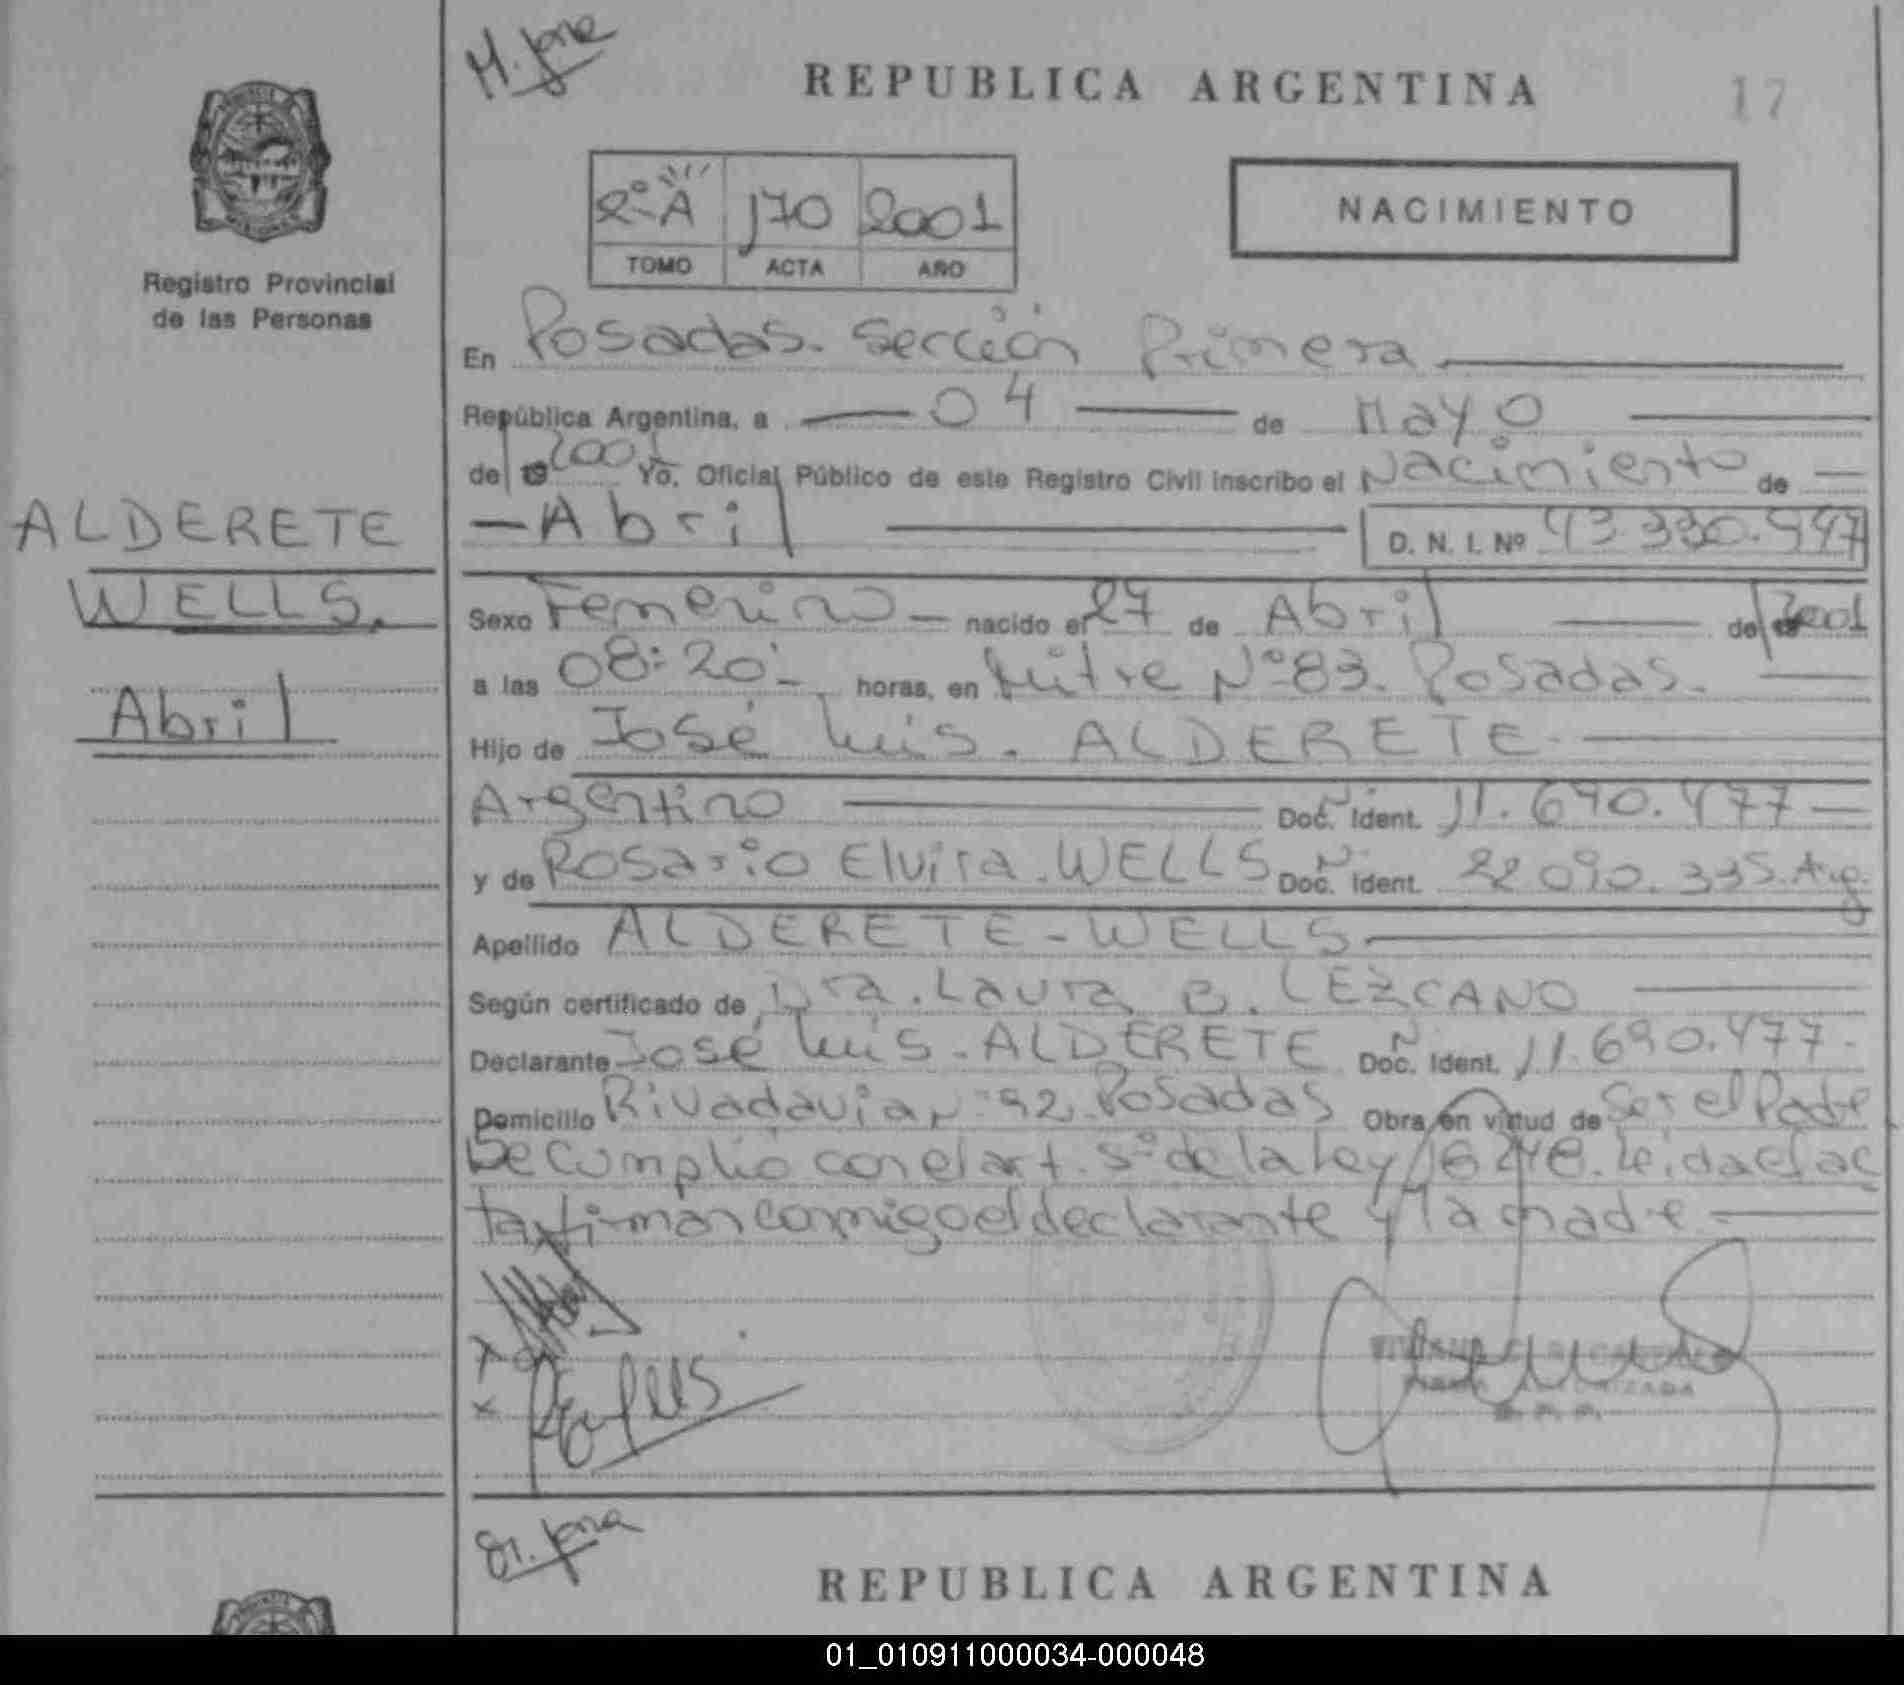 M. Jose
REPUBLICA ARGENTINA
17
2º A 170 2001
TOMO ACTA AÑO
NACIMIENTO
Registro Provincial
de las Personas
En Posadas. Sección Primera
República Argentina, a 04 de Mayo
de 19 2001 Yo, Oficial Público de este Registro Civil inscribo el Nacimiento de
Abril D. N. I. Nº 43.330.997
ALDERETE
WELLS.
Abril
Sexo Femenino nacido el 27 de Abril de 19 2001
a las 08:20 horas, en Mitre Nº 83. Posadas.
Hijo de José Luis. ALDERETE
Argentino Doc. Ident. Nº 11.690.477
y de Rosario Elvira. WELLS Doc. Ident. Nº 22 090.335. Arg.
Apellido ALDERETE - WELLS
Según certificado de Dra. Laura B. LEZCANO
Declarante José Luis. ALDERETE Doc. Ident. Nº 11.690.477.
Domicilio Rivadavia Nº 92 Posadas Obra en virtud de Ser el Padre
Se Cumplió con el art. 5º de la Ley 18248. Leida el ac
ta firman conmigo el declarante y la madre
FIRMA AUTORIZADA
REPUBLICA ARGENTINA
01_010911000034-000048